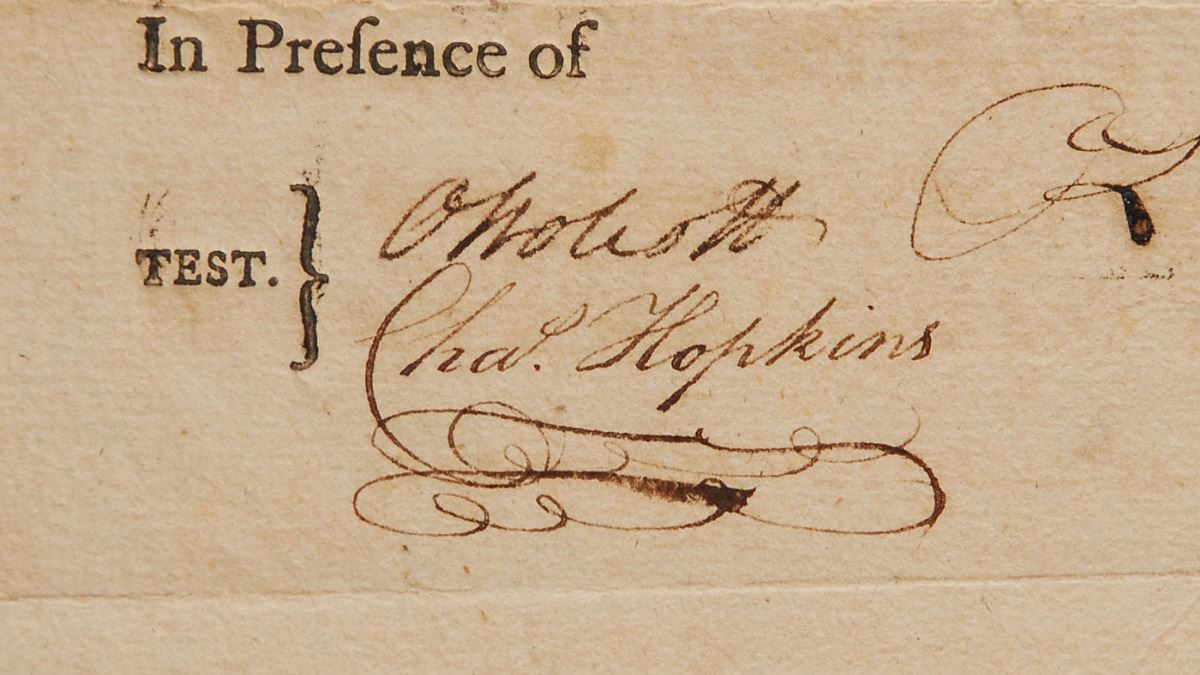 In Preſence of
TEST.
OWolcott
Chaˢ. Hopkins